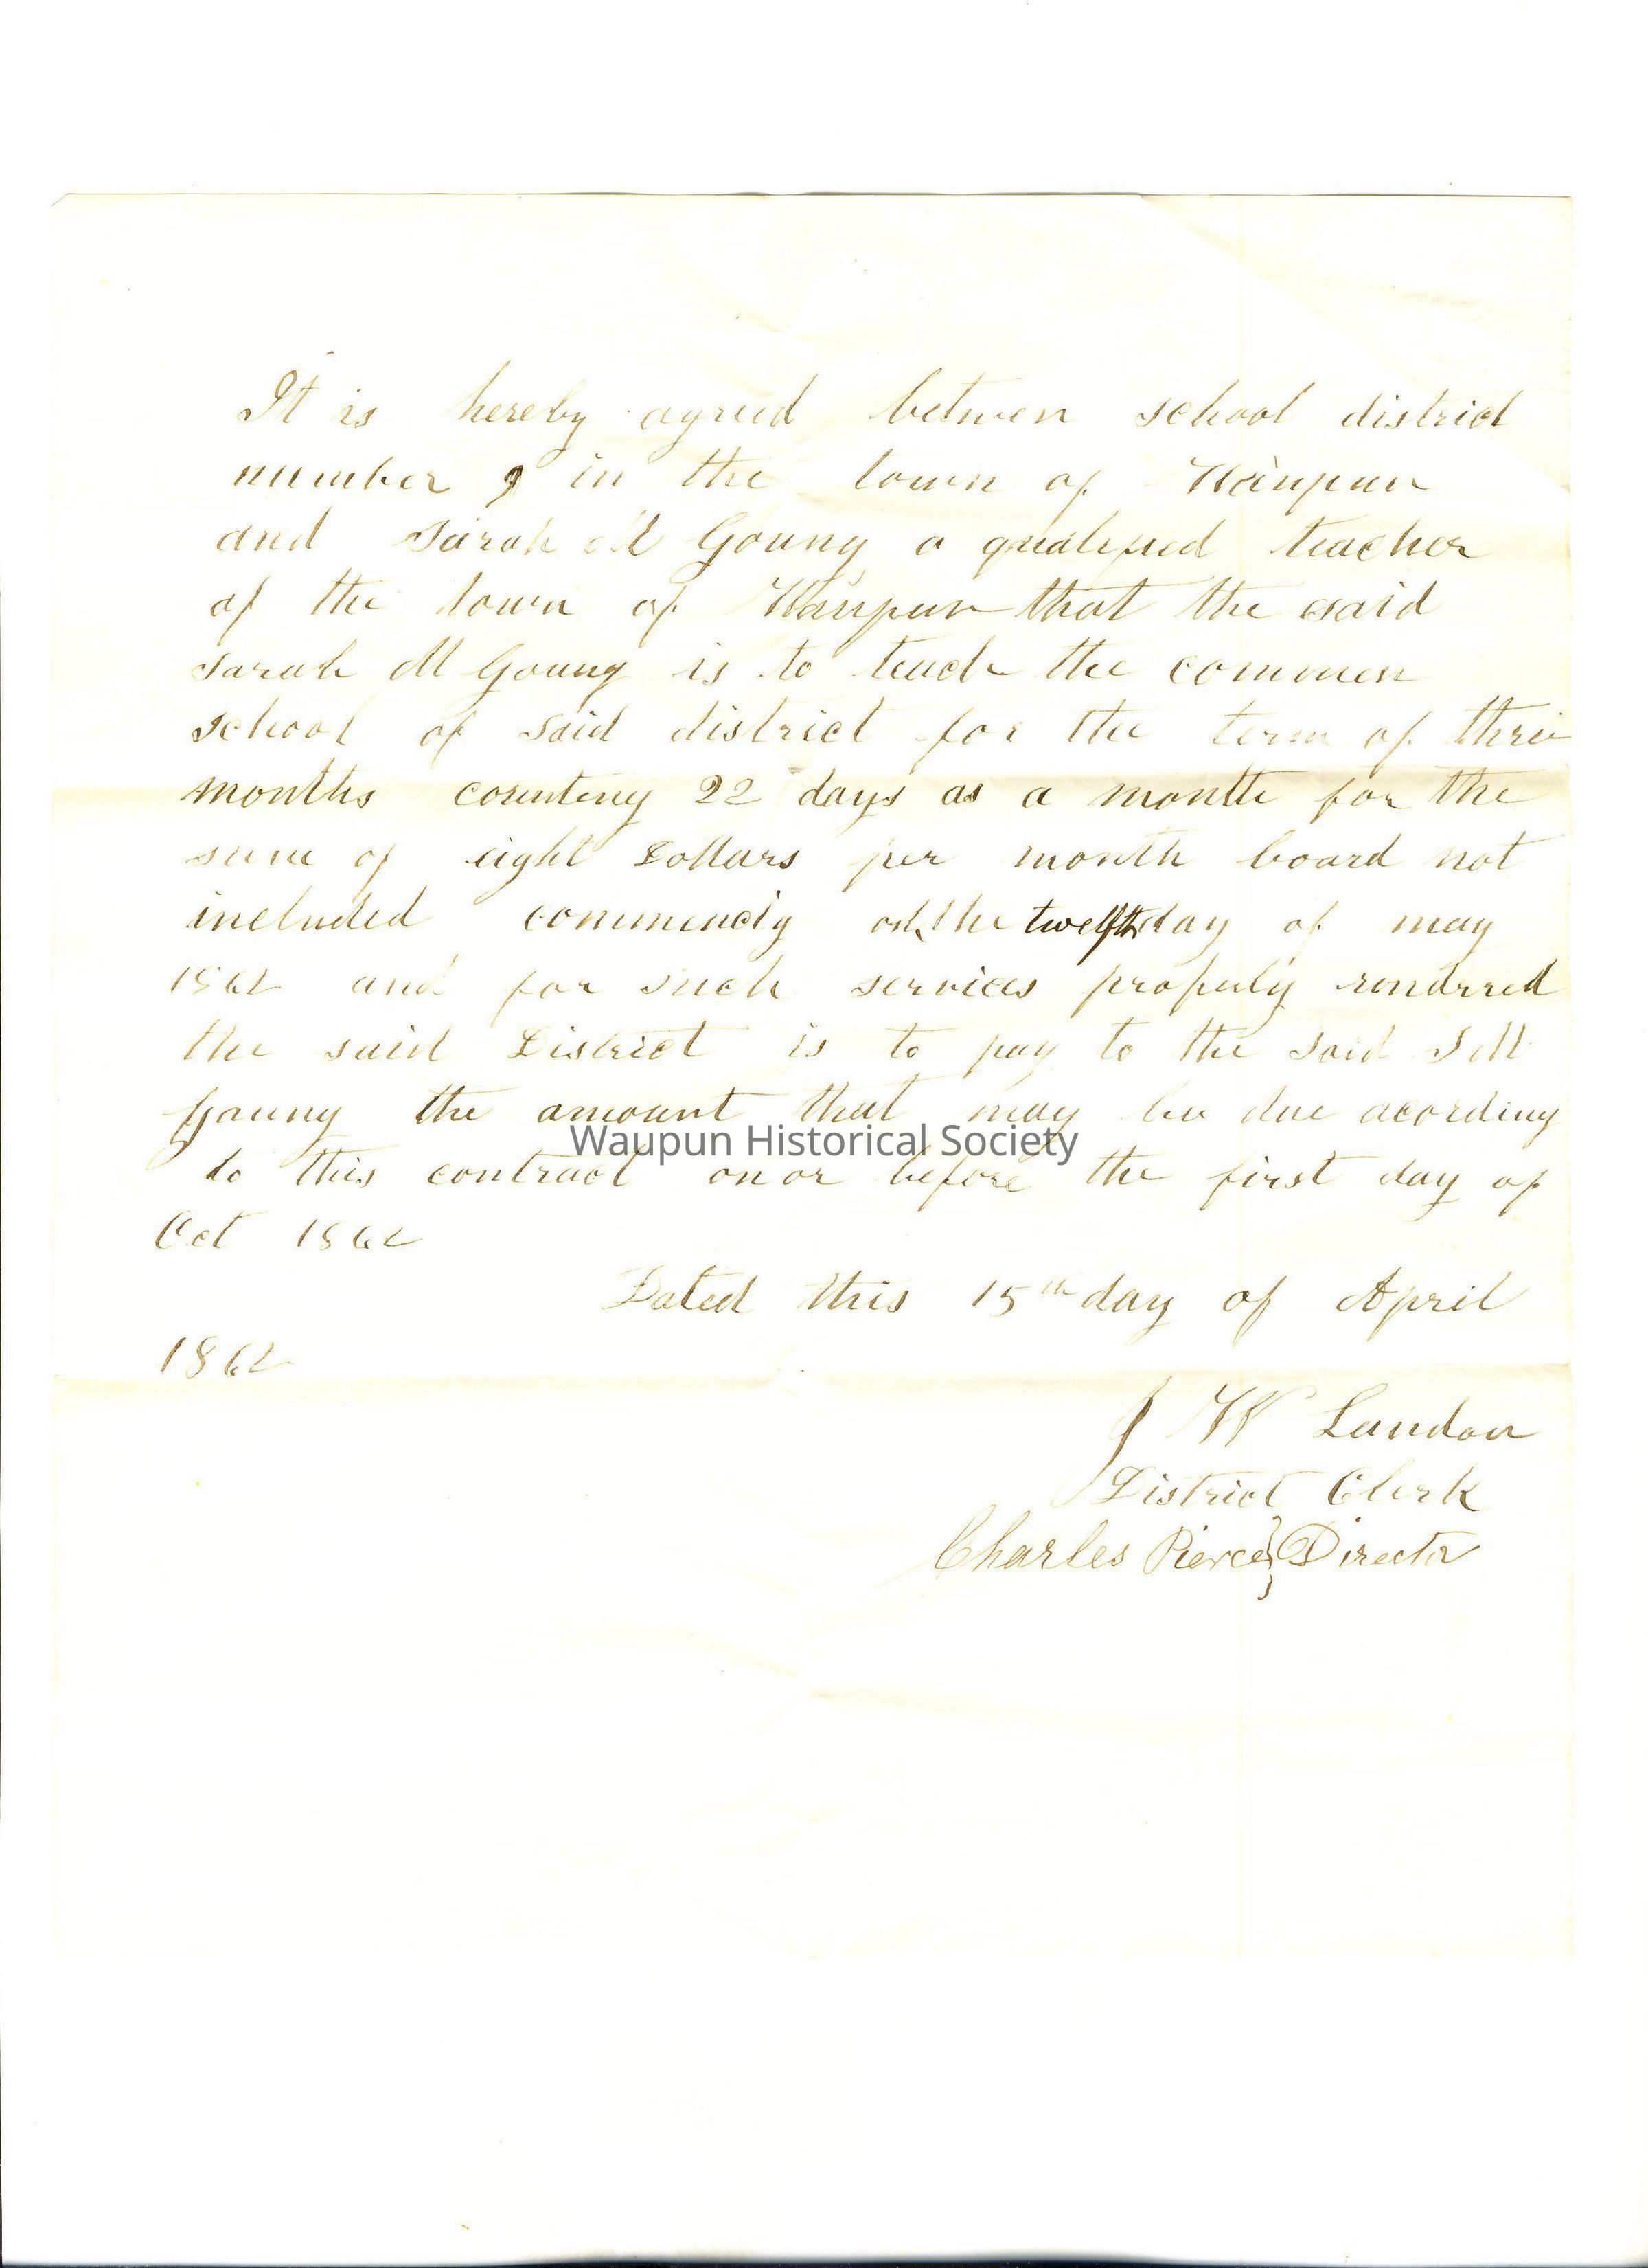 It is hereby agreed betwen school district
number 9 in the town of Waupun
and Sarah M Young a qualified teacher
of the town of Waupun that the said
Sarah M Young is to teach the common
school of said district for the term of three
months counting 22 days as a month for the
sum of eight Dollars per month board not
included commencig on the twelfth day of may
1862 and for such services properly rendered
the said District is to pay to the said S M
Young the amount that may be due acording
Waupun Historical Society
to this contract on or before the first day of
Oct 1862
Dated this 15th day of April
1862
J W Landon
District Clerk
Charles Pierce} Director